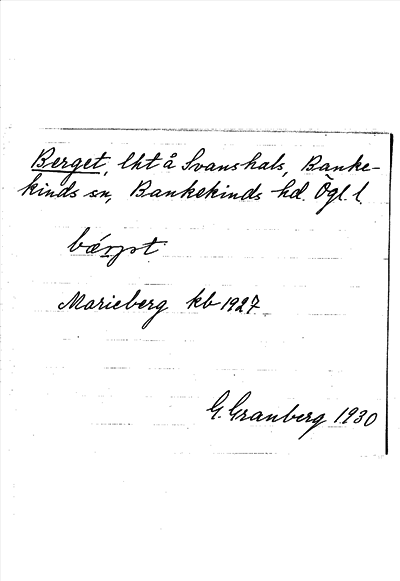 Berget, lht å Svanshals, Banke-
kinds sn, Bankekinds hd. Ögl. l.
Marieberg kb 1927.
G. Granberg 1930